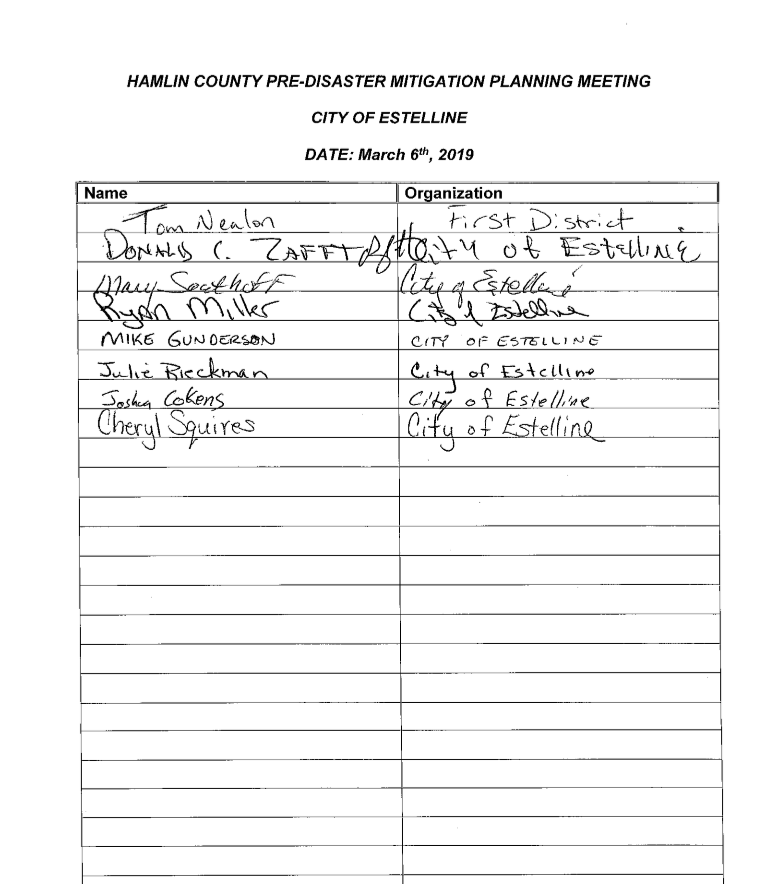 HAMLIN COUNTY PRE-DISASTER MITIGATION PLANNING MEETING
CITY OF ESTELLINE
DATE: March 6th, 2019
Name Organization
Tom Nealon First District
DONALD C. ZAFFT City of Estelline
Mary Southoff City of Estelline
Ryan Miller City of Estelline
MIKE GUNDERSON CITY OF ESTELLINE
Julie Rieckman City of Estelline
Joshua Cokens City of Estelline
Cheryl Squires City of Estelline